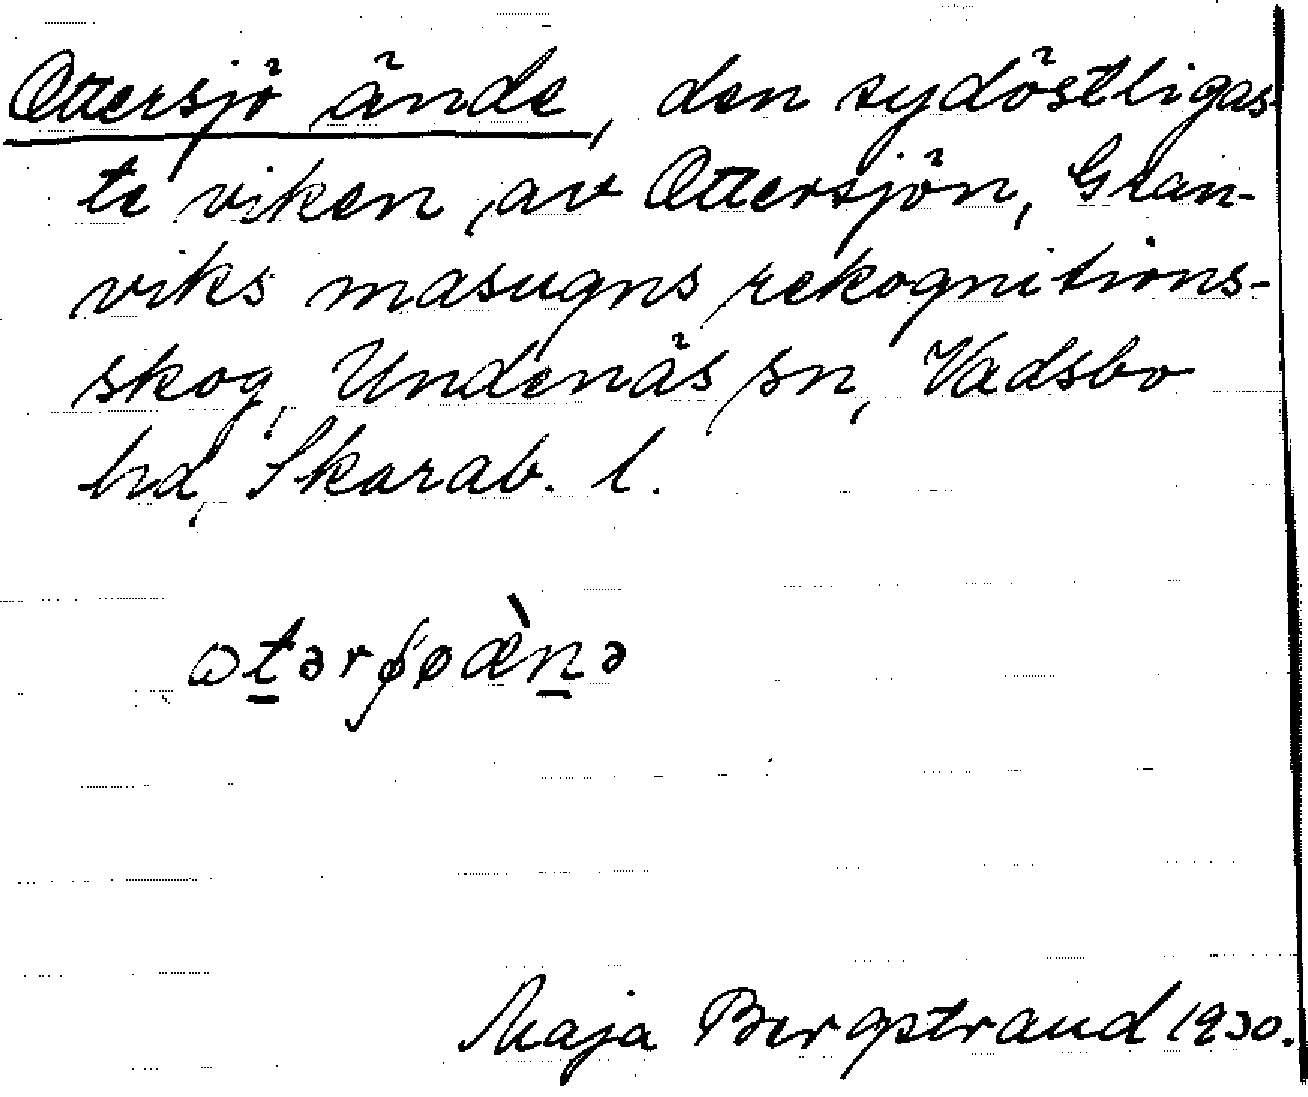 Ottersjö ände, den sydöstligas-
te viken av Ottersjön, Gran-
viks masugns rekognitions-
skog, Undenäs sn, Vadsbo
hd, Skarab. l.
ɷt̲ərʃøæ̀n̲ə
Maja Bergstrand 1930.